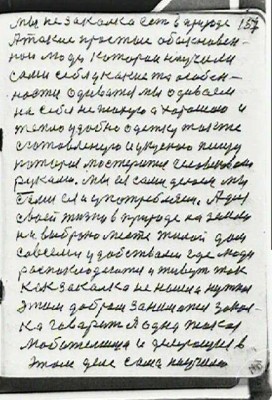 мы не закалка есть в природе 157
А такие простые обыкновен-
ные люди которые изучили
сами себя какие то особен-
ности одеваться мы одеваем
на себя не такую а хорошую и
тепло удобно одетку также
сготовленную и вкусною пищу
которая мастерится человеческими
руками. Мы её сами делаем мы
сами её и употребляем. А для
своей жизни в природе на земле
ни выбрано место жилой дом
совсеми удобствами где люди
располагаются и живут так
как закалка не нашла нужным
этим добром заниматся закал-
ка говорит Я одна такая
Любительница и
этом деле сама научила